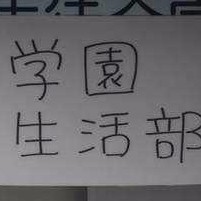 学園
生活部